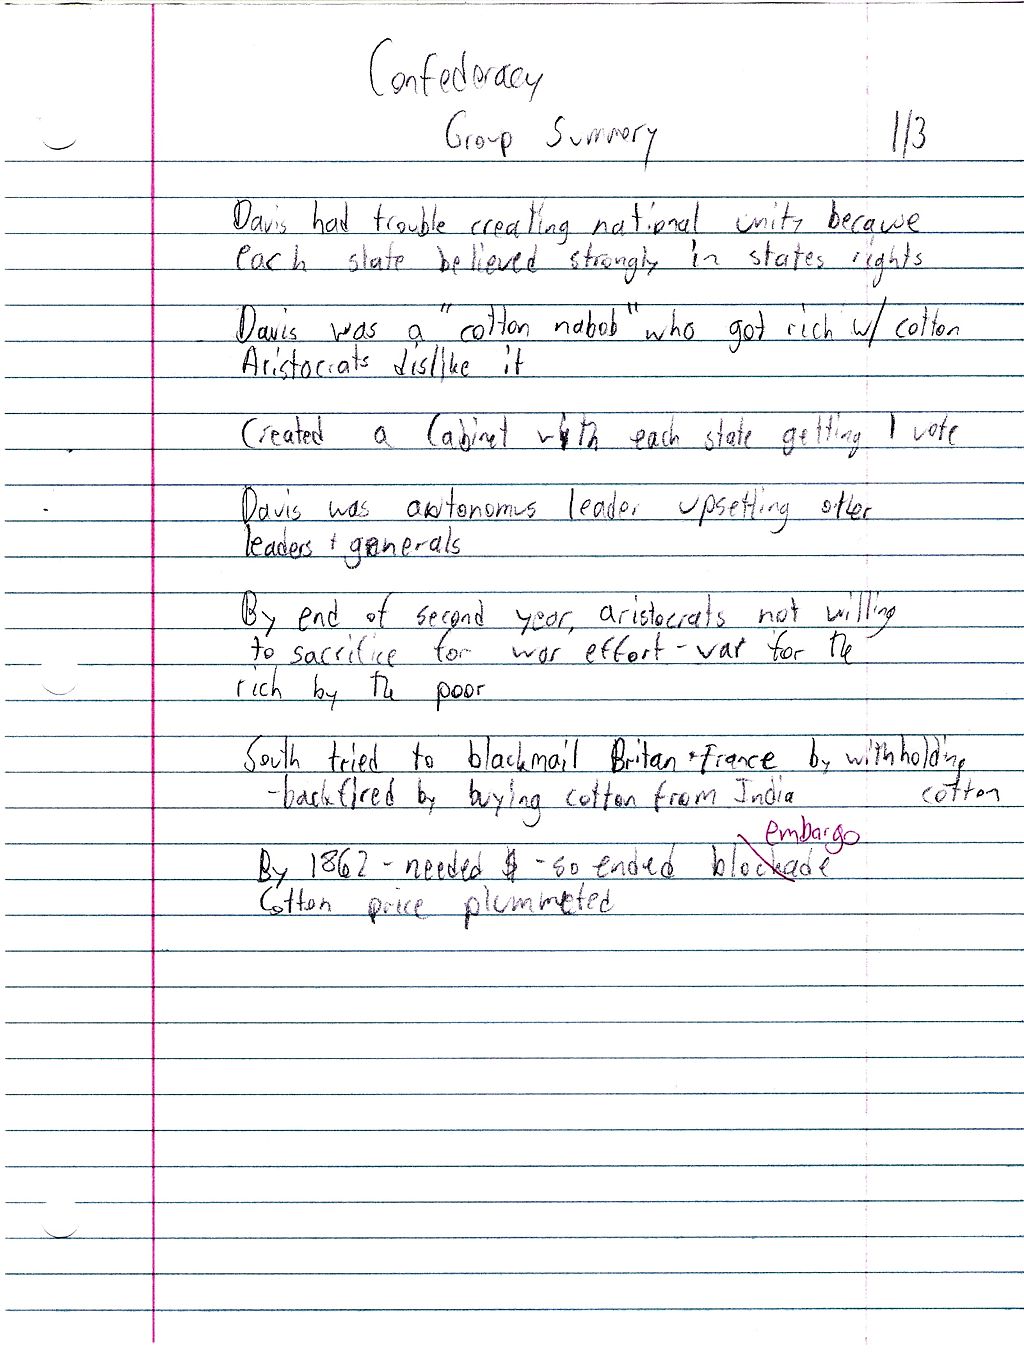 Confederacy
Group Summery 1/3
Davis had trouble creating national unity because
each state believed strongly in states rights
Davis was a "cotton nabob" who got rich w/ cotton
Aristocrats dislike it
Created a Cabinet with each state getting 1 vote
Davis was autonomus leader upsetting other
leaders + generals
By end of second year, aristocrats not willing
to sacrifice for war effort - war for the
rich by the poor
South tried to blackmail Britan + France by withholding
- backfired by buying cotton from India cotton
embargo
By 1862 - needed $ - so ended blockade
Cotton price plummeted